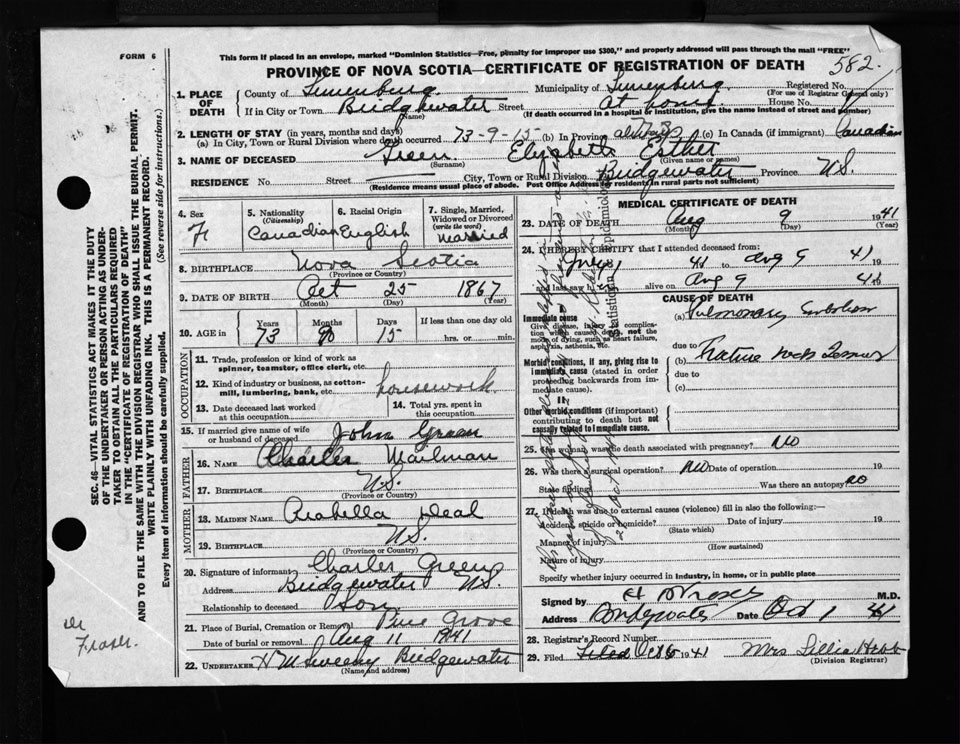 FORM 6
This form if placed in an envelope, marked "Dominion Statistics—Free, penalty for improper use $300," and properly addressed will pass through the mail "FREE"
PROVINCE OF NOVA SCOTIA—CERTIFICATE OF REGISTRATION OF DEATH
582.
1. PLACE OF DEATH
County of Lunenburg. Municipality of Lunenburg. Registered No.
(For use of Registrar General only)
If in City or Town Bridgewater Street At home House No.
(Name) (If death occurred in a hospital or institution, give the name instead of street and number)
2. LENGTH OF STAY (in years, months and days)
(a) In City, Town or Rural Division where death occurred 73-9-15 (b) In Province (c) In Canada (if immigrant) Canadian
3. NAME OF DECEASED Green Elizabeth Esther
(Surname) (Given name or names)
RESIDENCE No. Street City, Town or Rural Division Bridgewater Province N.S.
(Residence means usual place of abode. Post Office Address for residents in rural parts not sufficient)
4. Sex F
5. Nationality (Citizenship) Canadian
6. Racial Origin English
7. Single, Married, Widowed or Divorced (write the word) Married
8. BIRTHPLACE Nova Scotia
(Province or Country)
9. DATE OF BIRTH Oct 25 1867
(Month) (Day) (Year)
10. AGE in Years Months Days If less than one day old
73 9 15 hrs. or min.
OCCUPATION
11. Trade, profession or kind of work as spinner, teamster, office clerk, etc.
12. Kind of industry or business, as cotton-mill, lumbering, bank, etc. housework
13. Date deceased last worked at this occupation
14. Total yrs. spent in this occupation
15. If married give name of wife or husband of deceased John Green
FATHER
16. NAME Charles Mailman
17. BIRTHPLACE N.S.
(Province or Country)
MOTHER
18. MAIDEN NAME Arabella Deal
19. BIRTHPLACE N.S.
(Province or Country)
20. Signature of informant Charles Green
Address Bridgewater NS
Relationship to deceased Son
21. Place of Burial, Cremation or Removal Pine Grove
Date of burial or removal Aug 11 1941
22. UNDERTAKER Sweeny Bridgewater
(Name and address)
MEDICAL CERTIFICATE OF DEATH
23. DATE OF DEATH Aug 9 1941
(Month) (Day) (Year)
24. I HEREBY CERTIFY that I attended deceased from:
41 to Aug 9 41
and last saw h alive on Aug 9 41
CAUSE OF DEATH
Immediate cause
Give disease, injury or complication which caused death, not the mode of dying, such as heart failure, asphyxia, asthenia, etc.
(a) Pulmonary Embolism
due to
Morbid conditions, if any, giving rise to immediate cause (stated in order proceeding backwards from immediate cause).
(b) Fracture neck Femur
due to
(c)
II
Other morbid conditions (if important) contributing to death but not causally related to immediate cause.
25. If a woman, was the death associated with pregnancy? No
26. Was there a surgical operation? No Date of operation 19
State findings Was there an autopsy No
27. If death was due to external causes (violence) fill in also the following:—
Accident, suicide or homicide? Date of injury 19
(State which)
Manner of injury
(How sustained)
Nature of injury
Specify whether injury occurred in industry, in home, or in public place
Signed by M.D.
Bridgewater Date Oct 1 41
28. Registrar's Record Number
29. Filed Filed Oct 6 1941 Mrs Lillia Hebb
(Division Registrar)
SEC. 46—VITAL STATISTICS ACT MAKES IT THE DUTY
OF THE UNDERTAKER OR PERSON ACTING AS UNDER-
TAKER TO OBTAIN ALL THE PARTICULARS REQUIRED
IN THE "CERTIFICATE OF REGISTRATION OF DEATH"
AND TO FILE THE SAME WITH THE DIVISION REGISTRAR WHO SHALL ISSUE THE BURIAL PERMIT.
WRITE PLAINLY WITH UNFADING INK. THIS IS A PERMANENT RECORD.
Every item of information should be carefully supplied. (See reverse side for instructions.)
Dr
Fraser.